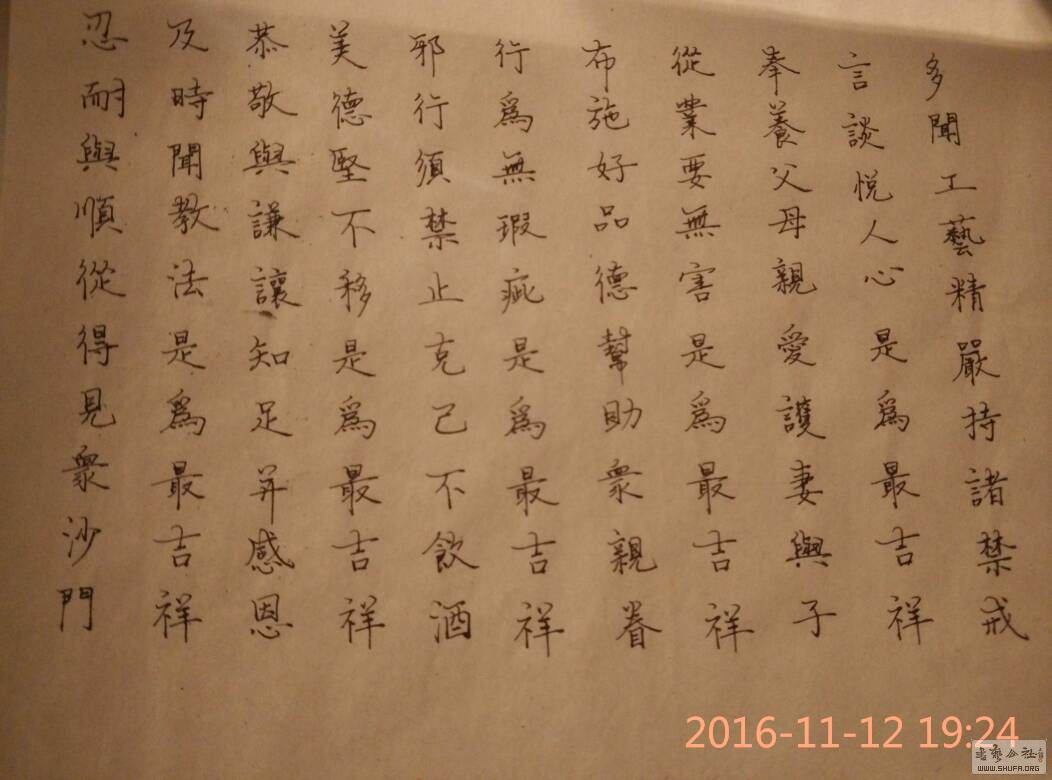 多聞工藝精嚴持諸禁戒
言談悅人心是為最吉祥
奉養父母親愛護妻與子
從業要無害是為最吉祥
布施好品德幫助衆親眷
行為無瑕疵是為最吉祥
邪行須禁止克己不飲酒
美德堅不移是為最吉祥
恭敬與謙讓知足并感恩
及時聞教法是為最吉祥
忍耐與順從得見衆沙門
2016-11-12 19:24
WWW.SHUFA.ORG